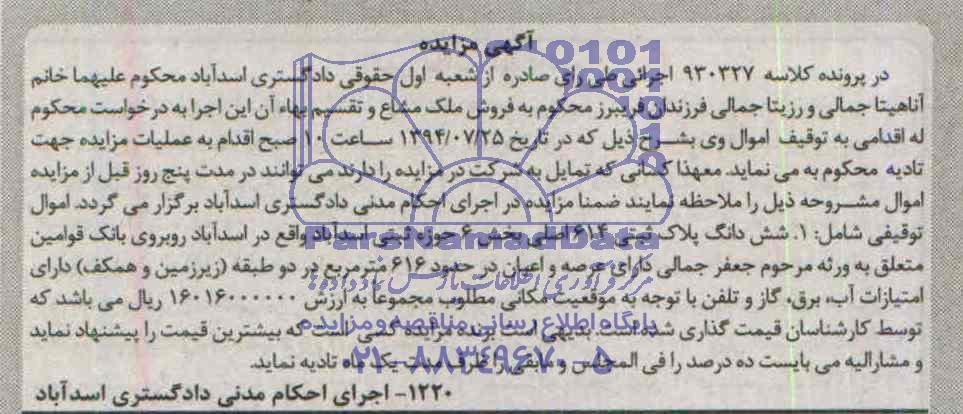 آگهی مزایده
در پرونده کلاسه ۹۳۰۳۲۷ اجرائی طی رای صادره از شعبه اول حقوقی دادگستری اسدآباد محکوم علیهما خانم
آناهیتا جمالی و رزیتا جمالی فرزندان فریبرز محکوم به فروش ملک مشاع و تقسیم بهاء آن این اجرا به درخواست محکوم
له اقدامی به توقیف اموال وی بشرح ذیل که در تاریخ ۱۳۹۴/۰۷/۲۵ ساعت ۱۰ صبح اقدام به عملیات مزایده جهت
تادیه محکوم به می نماید. معهذا کسانی که تمایل به شرکت در مزایده را دارند می توانند در مدت پنج روز قبل از مزایده
اموال مشروحه ذیل را ملاحظه نمایند ضمنا مزایده در اجرای احکام مدنی دادگستری اسدآباد برگزار می گردد. اموال
توقیفی شامل: ۱. شش دانگ پلاک ثبتی ۶۱۴ اصلی بخش ۶ حوزه ثبتی اسدآباد واقع در اسدآباد روبروی بانک قوامین
متعلق به ورثه مرحوم جعفر جمالی دارای عرصه و اعیان در حدود ۶۱۶ مترمربع در دو طبقه (زیرزمین و همکف) دارای
امتیازات آب، برق، گاز و تلفن با توجه به موقعیت مکانی مطلوب مجموعا به ارزش ۱۶۰۱۶۰۰۰۰۰۰ ریال می باشد که
توسط کارشناسان قیمت گذاری شده است. بدیهی است برنده مزایده کسی است که بیشترین قیمت را پیشنهاد نماید
و مشارالیه می بایست ده درصد را فی المجلس و مابقی را ظرف مدت یک ماه تادیه نماید.
۱۲۲۰- اجرای احکام مدنی دادگستری اسدآباد
ParsNamadData
پایگاه اطلاع رسانی مناقصه و مزایده
۰۲۱-۸۸۳۴۹۶۷۰-۵